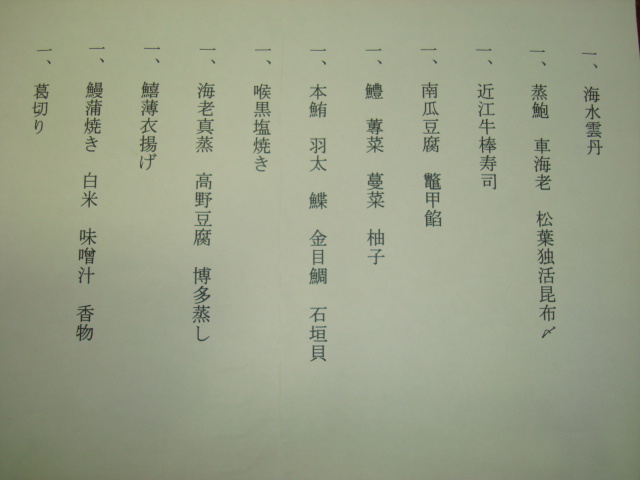 一、海水雲丹
一、蒸鮑　車海老　松葉独活昆布〆
一、近江牛棒寿司
一、南瓜豆腐　鼈甲餡
一、鱧　蓴菜　蔓菜　柚子
一、本鮪　羽太　鰈　金目鯛　石垣貝
一、喉黒塩焼き
一、海老真蒸　高野豆腐　博多蒸し
一、鱚薄衣揚げ
一、鰻蒲焼き　白米　味噌汁　香物
一、葛切り